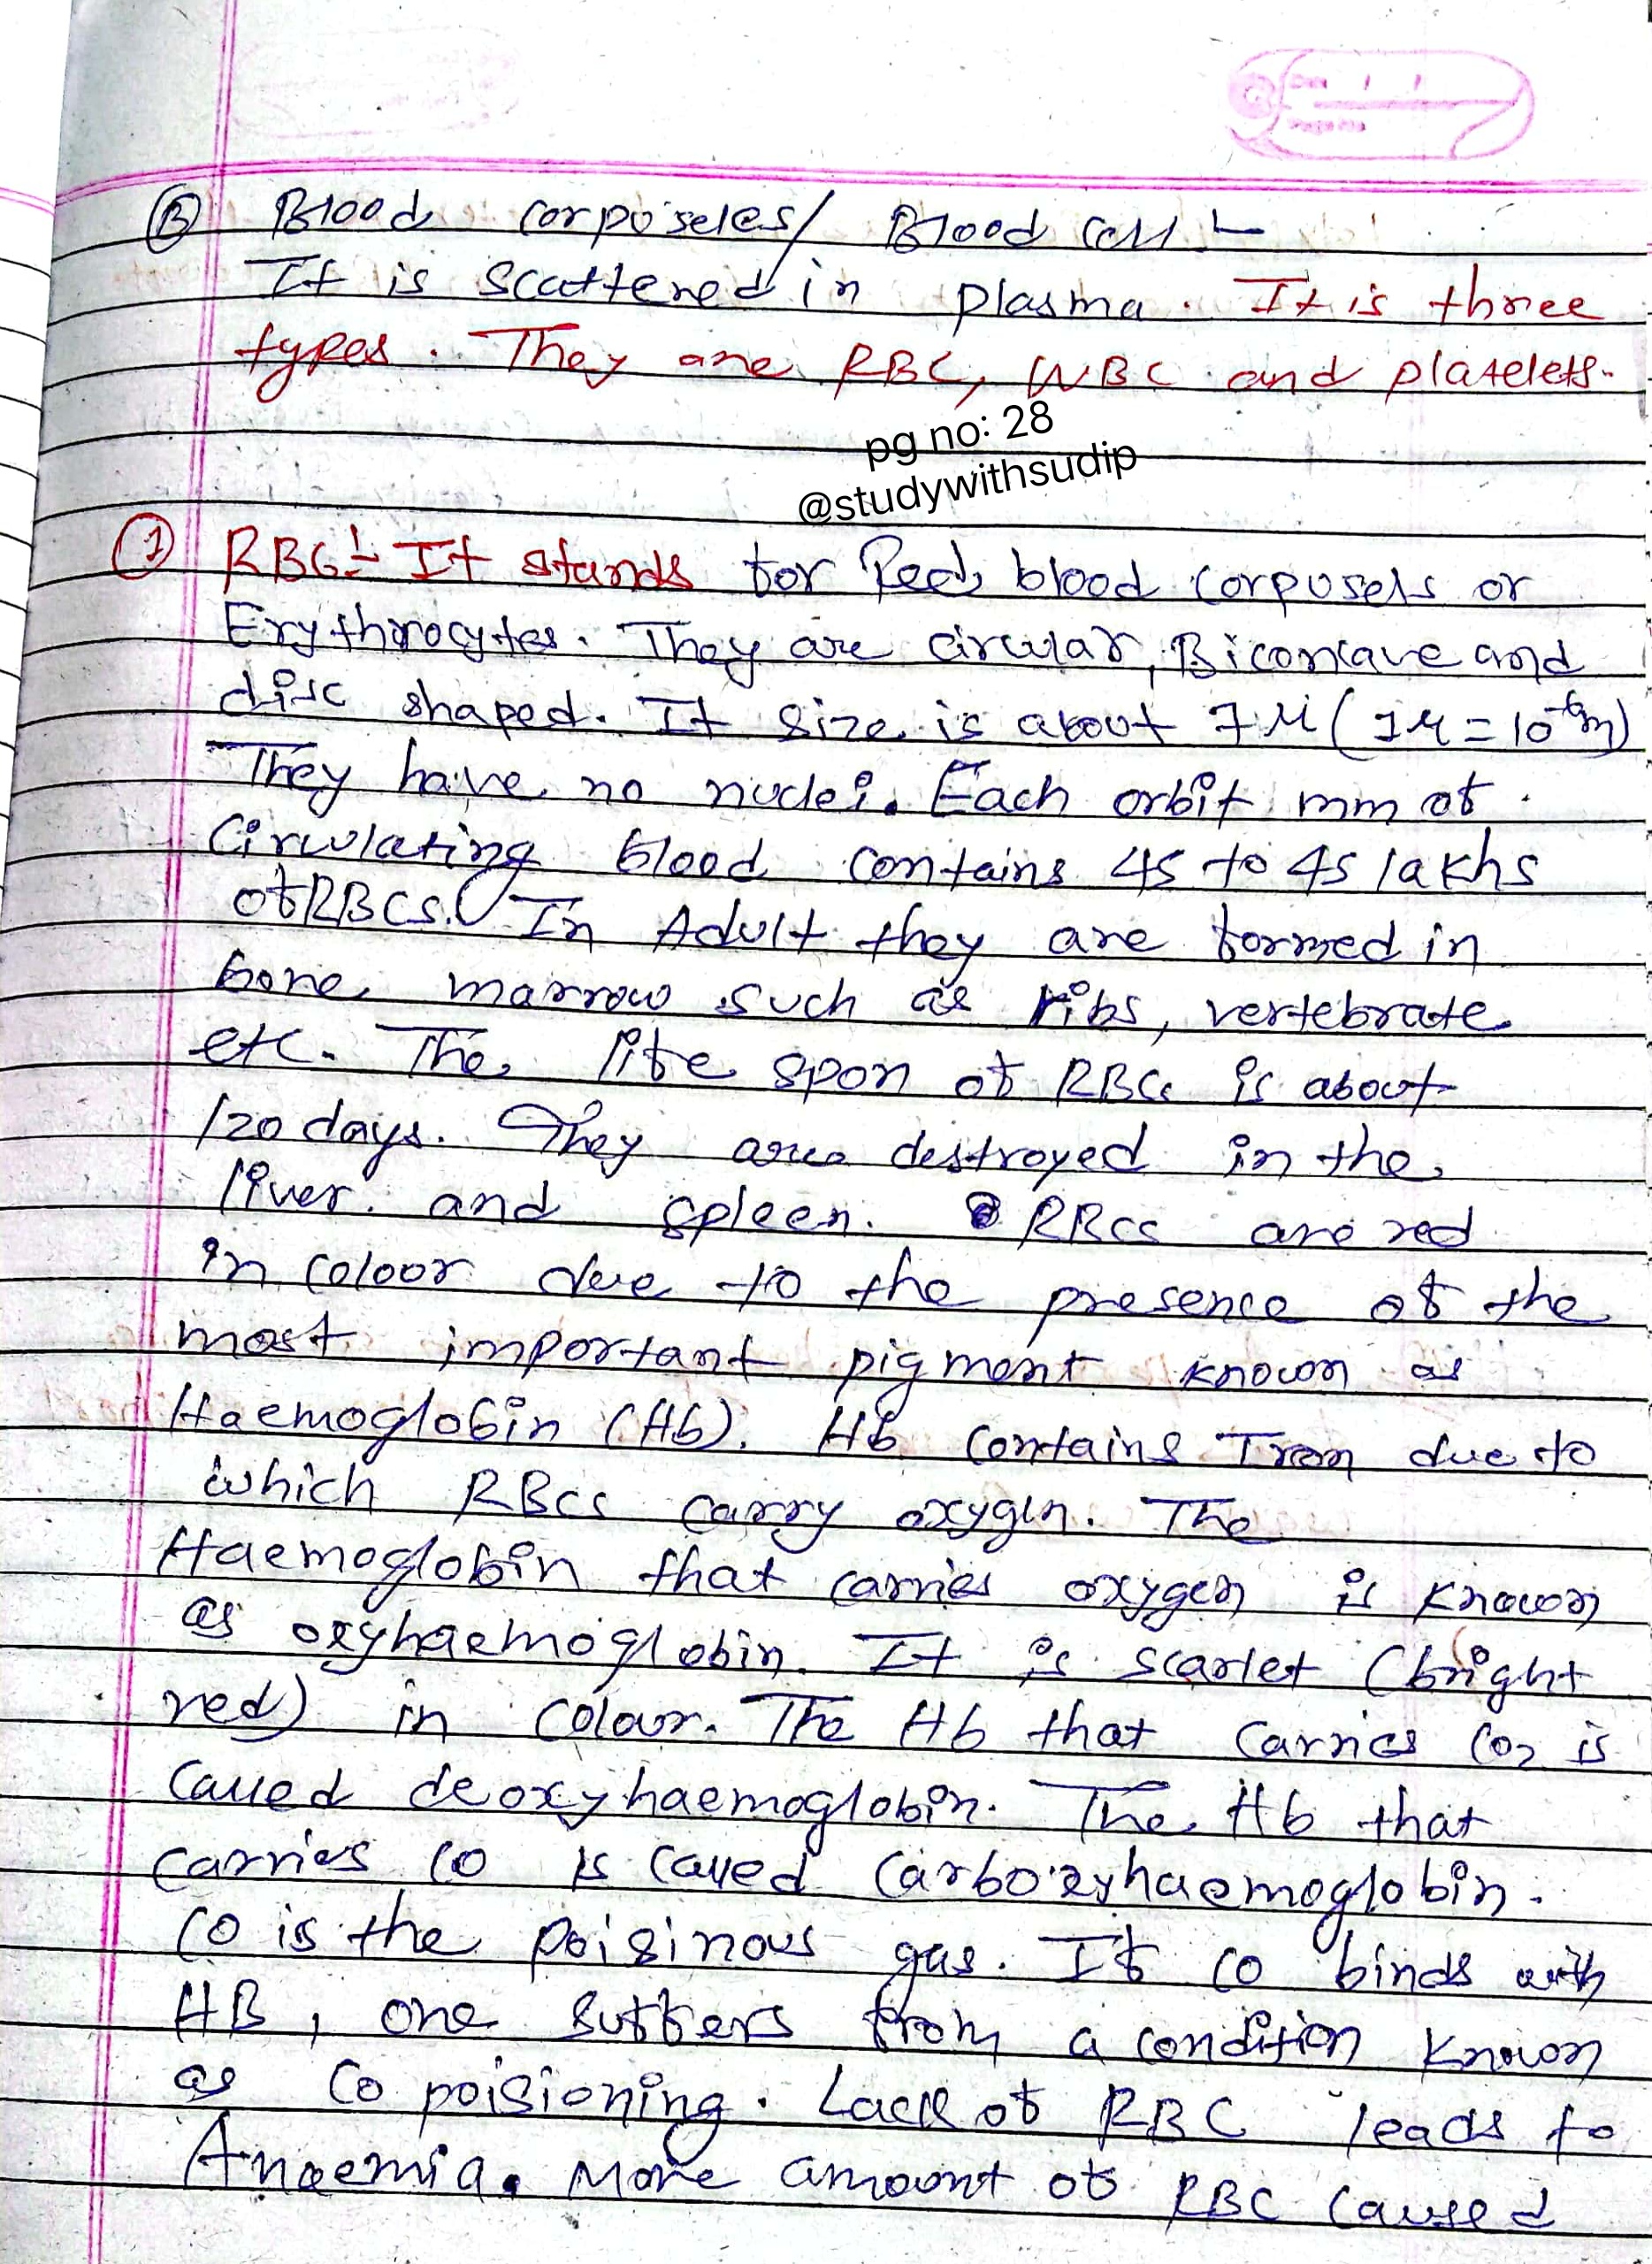 B Blood corpuseles/ Blood cell :-
It is scattered in plasma. It is three
types. They are RBC, WBC and platelets.
pg no: 28
@studywithsudip
1 RBC:- It stands for Red blood corpusels or
Erythrocytes. They are circular, Biconcave and
disc shaped. It size is about 7 μ (1μ = 10⁻⁶m)
They have no nuclei. Each orbit mm of
Circulating blood contains 45 to 45 lakhs
of RBCs. In Adult they are formed in
bone marrow such as ribs, vertebrate
etc. The life spon of RBCs is about
120 days. They are destroyed in the
liver and spleen. RBCs are red
in coloor due to the presence of the
most important pigment known as
Haemoglobin (Hb). Hb contains Iron due to
which RBCs carry oxygen. The
Haemoglobin that carries oxygen is known
as oxyhaemoglobin. It is scarlet (bright
red) in colour. The Hb that carries CO₂ is
called deoxyhaemoglobin. The Hb that
carries CO is called Carboxyhaemoglobin.
CO is the poisinous gas. If CO binds with
HB, one suffers from a condition known
as CO poisioning. Lack of RBC leads to
Anaemia. More amount of RBC caused